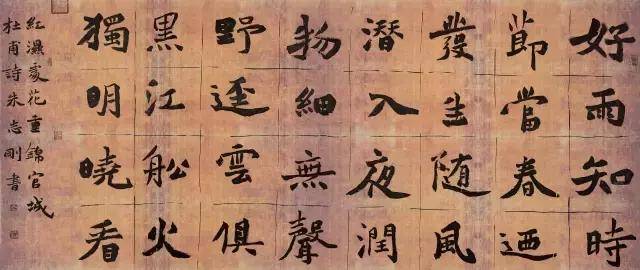 好雨知時
節當春迺
發生随風
潛入夜潤
物細無聲
野逕雲俱
黑江舩火
獨明曉看
紅濕處花重錦官城
杜甫詩朱志剛書